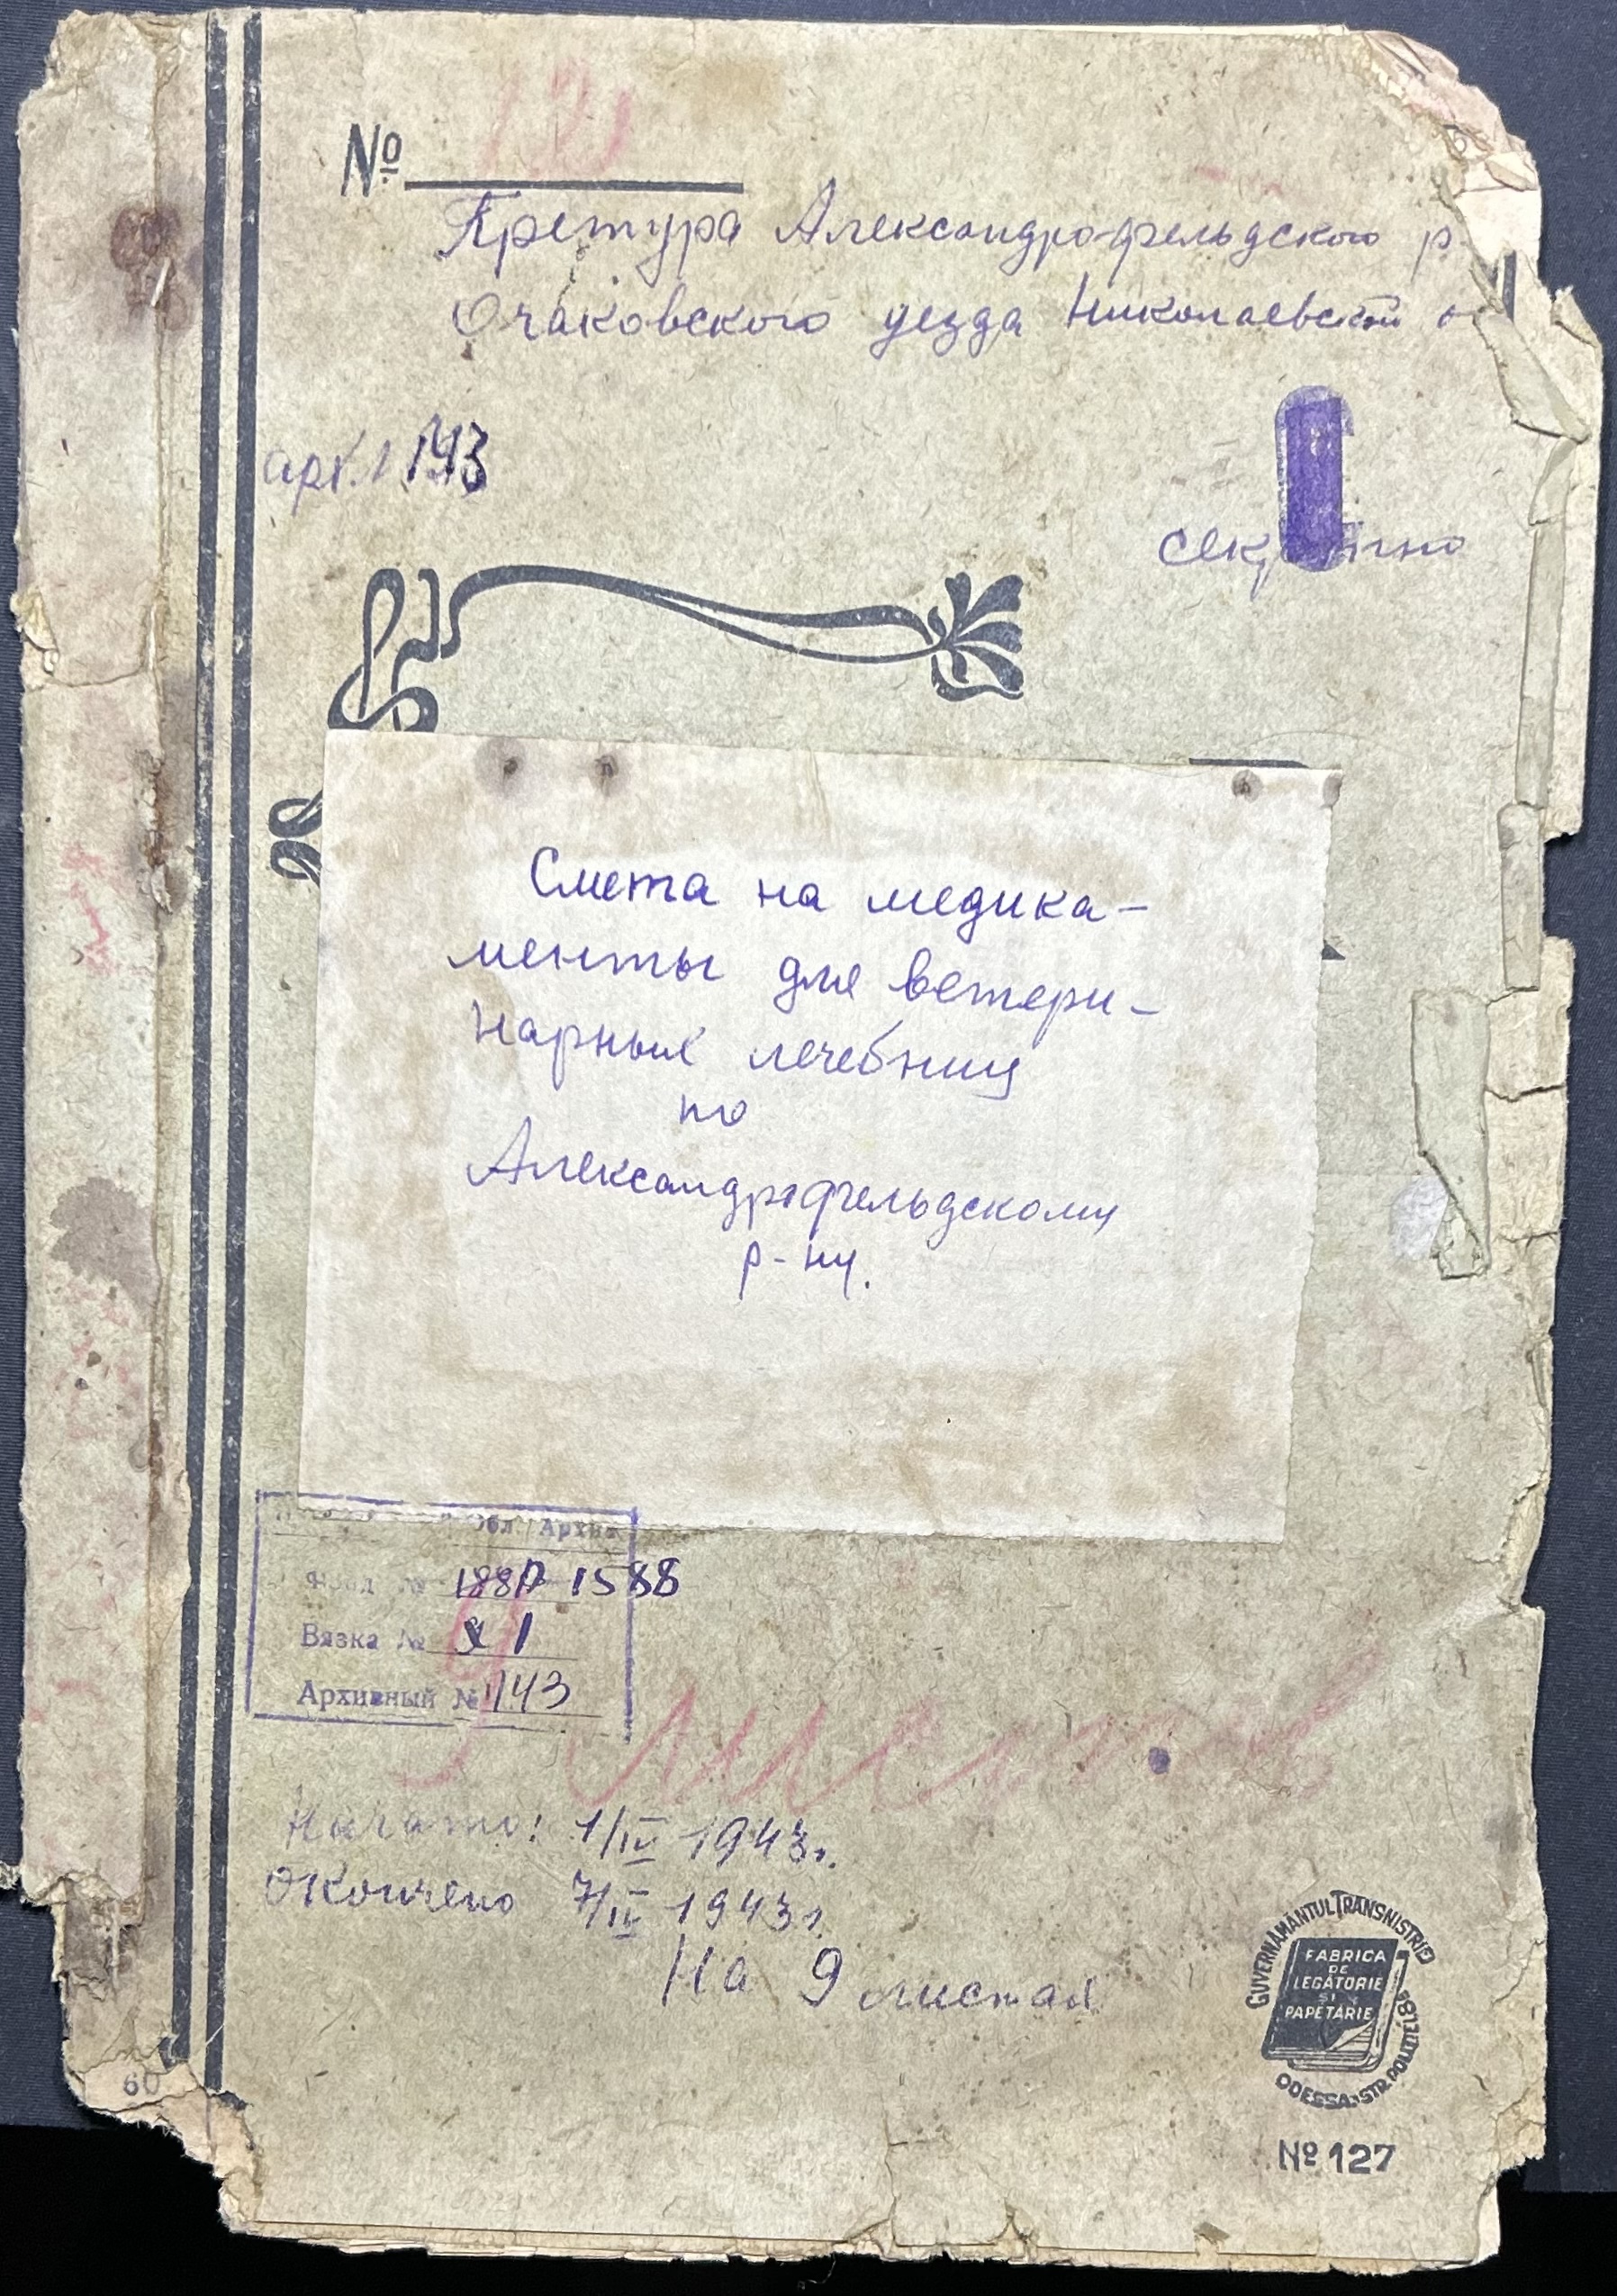 №
Претура Александро-фельдского р
Очаковского уезда Николаевской о
арх. 1143
секретно
Смета на медика-
менты для ветери-
нарных лечебниц
по
Александрофельдскому
р-ну.
Обл. Архив
Фонд № 188р 1588
Вязка № 1
Архивный № 1143
9 листов
Начато: 1/IV 1943г.
Окончено 7/IV 1943г.
На 9 листах
GUVERNĂMÂNTUL TRANSNISTRIEI
FABRICA
DE
LEGĂTORIE
ȘI
PAPETĂRIE
ODESSA·STR. POLIȚIEI 18
№ 127
60